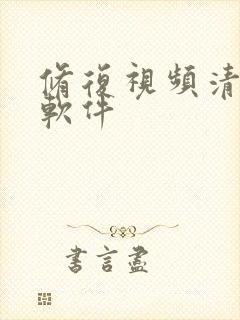 脩復視頻清
軟件
書言盡